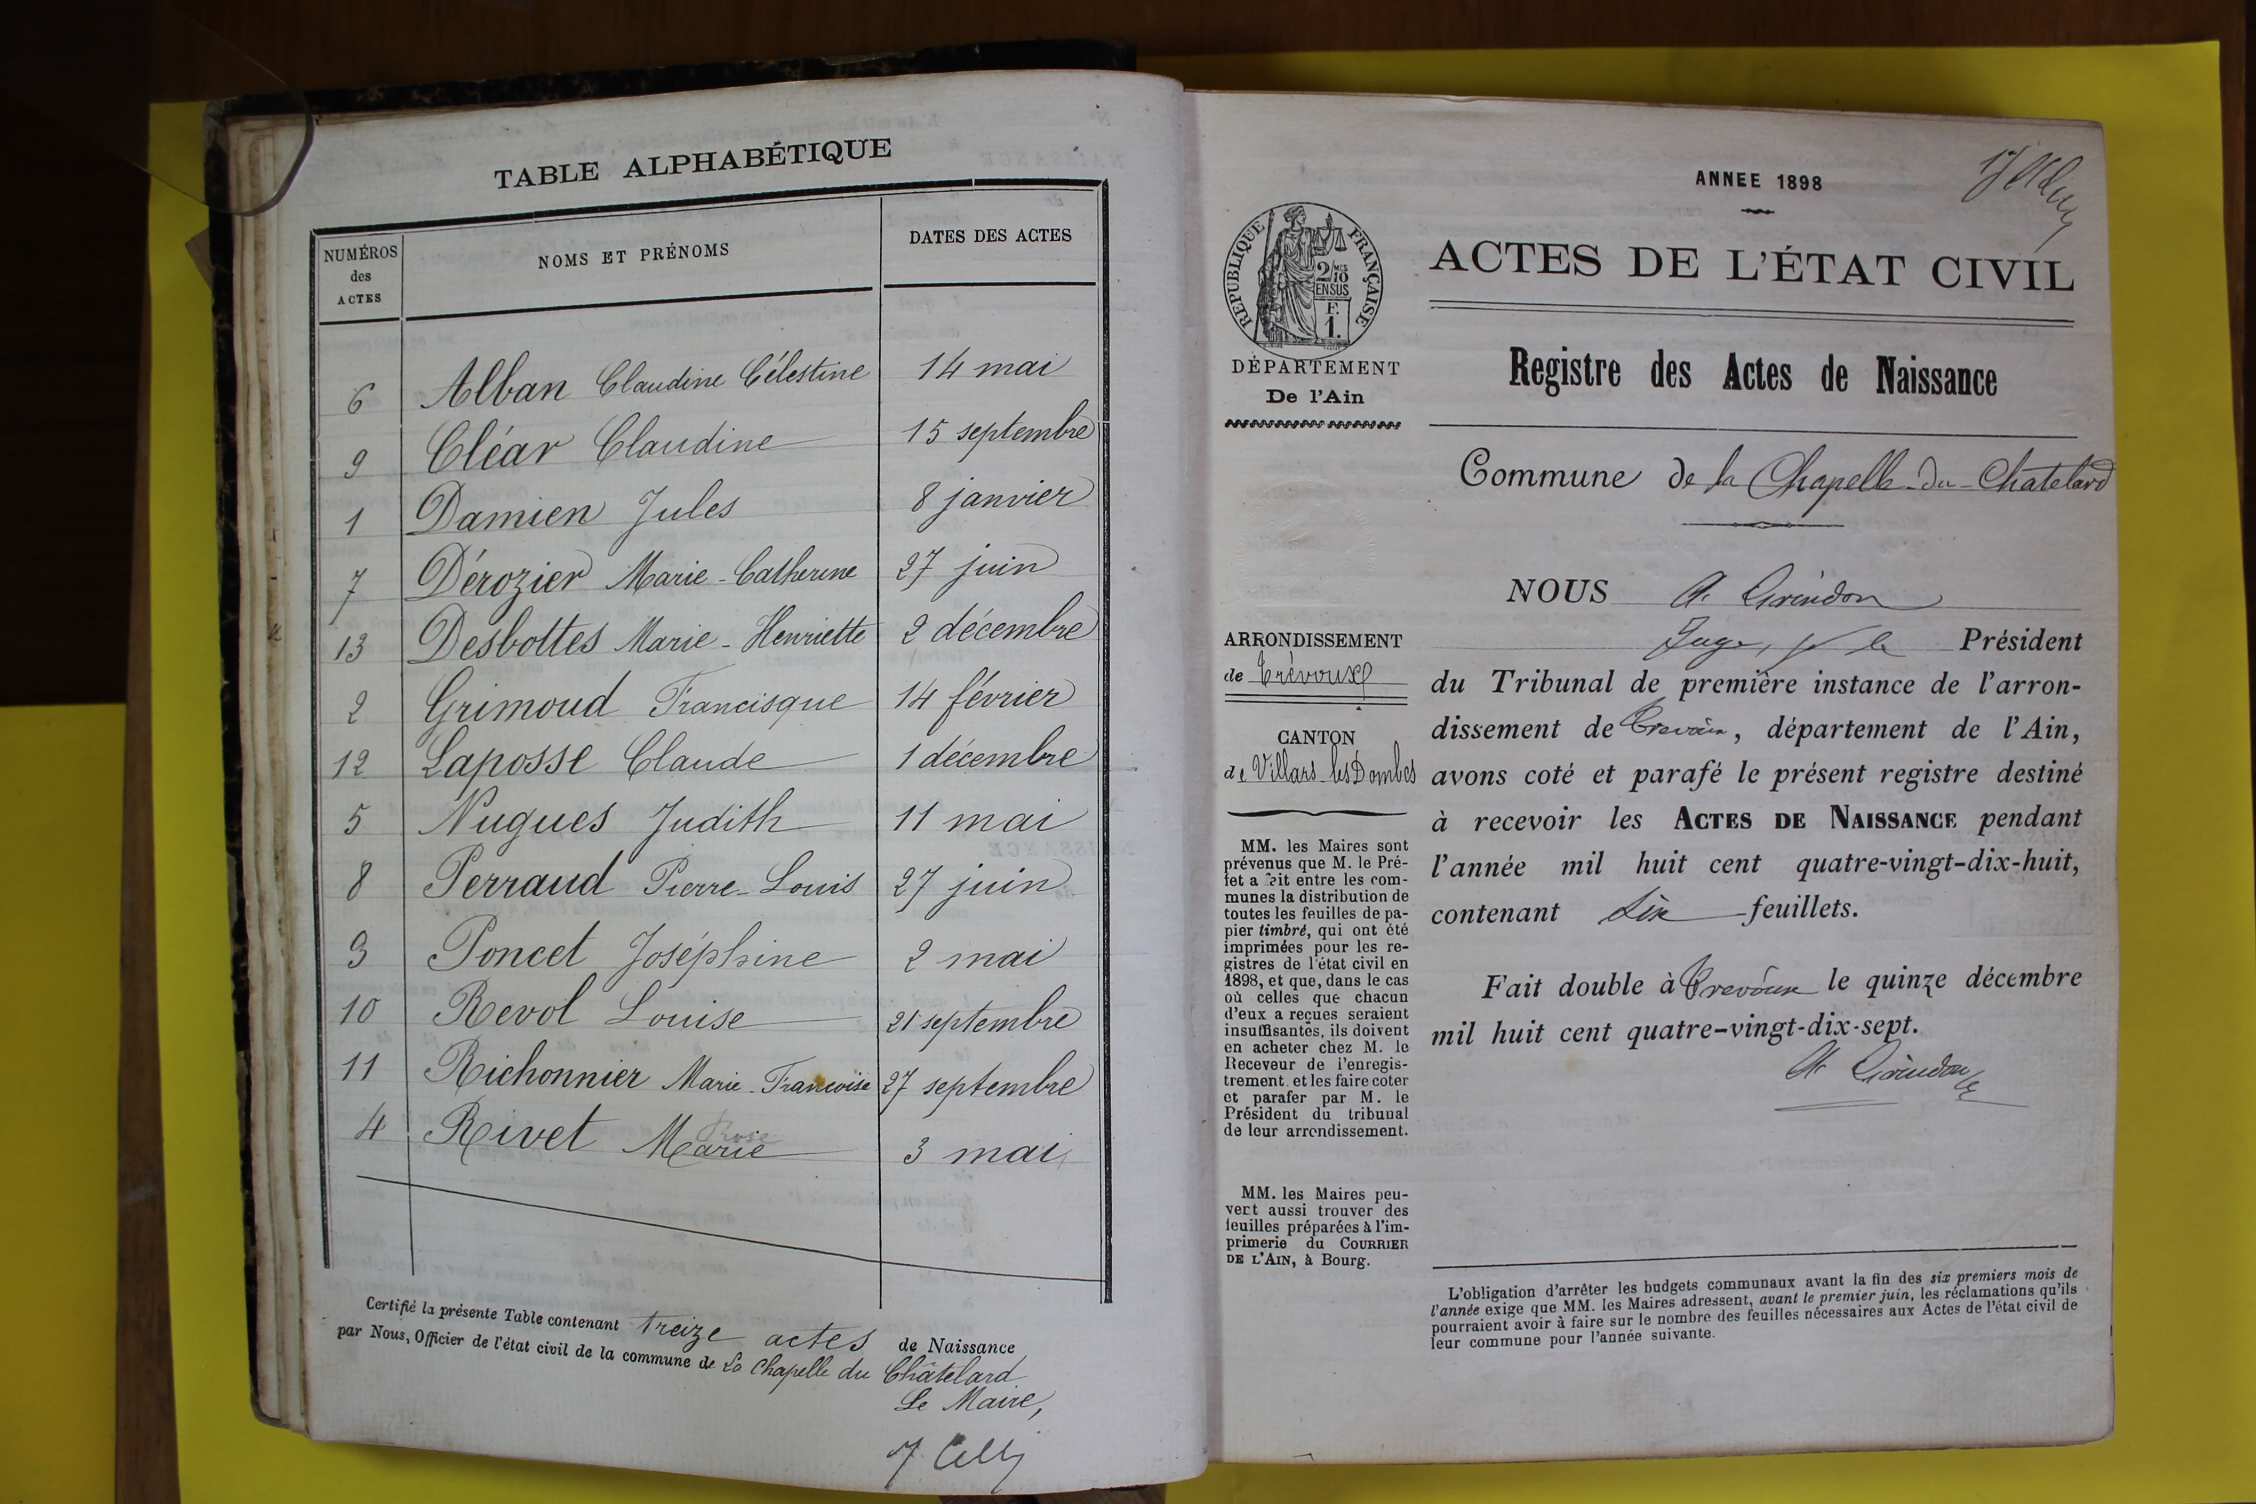 TABLE ALPHABÉTIQUE
NUMÉROS des ACTES NOMS ET PRÉNOMS DATES DES ACTES
6 Alban Claudine Célestine 14 mai
9 Cléar Claudine 15 septembre
1 Damien Jules 8 janvier
7 Dérozier Marie-Catherine 27 juin
13 Desbottes Marie-Henriette 2 décembre
2 Grimoud Francisque 14 février
12 Laposse Claude 1 décembre
5 Nugues Judith 11 mai
8 Perraud Pierre-Louis 27 juin
3 Poncet Joséphine 2 mai
10 Revol Louise 21 septembre
11 Richonnier Marie-Francoise 27 septembre
Rose
4 Rivet Marie 3 mai
Certifié la présente Table contenant treize actes de Naissance
par Nous, Officier de l'état civil de la commune de La Chapelle du Châtelard
Le Maire,
ANNEE 1898
RÉPUBLIQUE FRANÇAISE
2/10
EN SUS
F.
1.
DÉPARTEMENT
De l'Ain
ARRONDISSEMENT
de Trévoux
CANTON
de Villars les Dombes
MM. les Maires sont
prévenus que M. le Pré-
fet a fait entre les com-
munes la distribution de
toutes les feuilles de pa-
pier timbré, qui ont été
imprimées pour les re-
gistres de l'état civil en
1898, et que, dans le cas
où celles que chacun
d'eux a reçues seraient
insuffisantes, ils doivent
en acheter chez M. le
Receveur de l'enregis-
trement et les faire coter
et parafer par M. le
Président du tribunal
de leur arrondissement.
MM. les Maires peu-
vent aussi trouver des
feuilles préparées à l'im-
primerie du COURRIER
DE L'AIN, à Bourg.
ACTES DE L'ÉTAT CIVIL
Registre des Actes de Naissance
Commune de la Chapelle-du-Chatelard
NOUS A. Girindon
Juge, le Président
du Tribunal de première instance de l'arron-
dissement de Trevoux, département de l'Ain,
avons coté et parafé le présent registre destiné
à recevoir les ACTES DE NAISSANCE pendant
l'année mil huit cent quatre-vingt-dix-huit,
contenant Six feuillets.
Fait double à Trevoux le quinze décembre
mil huit cent quatre-vingt-dix-sept.
L'obligation d'arrêter les budgets communaux avant la fin des six premiers mois de
l'année exige que MM. les Maires adressent, avant le premier juin, les réclamations qu'ils
pourraient avoir à faire sur le nombre des feuilles nécessaires aux Actes de l'état civil de
leur commune pour l'année suivante.